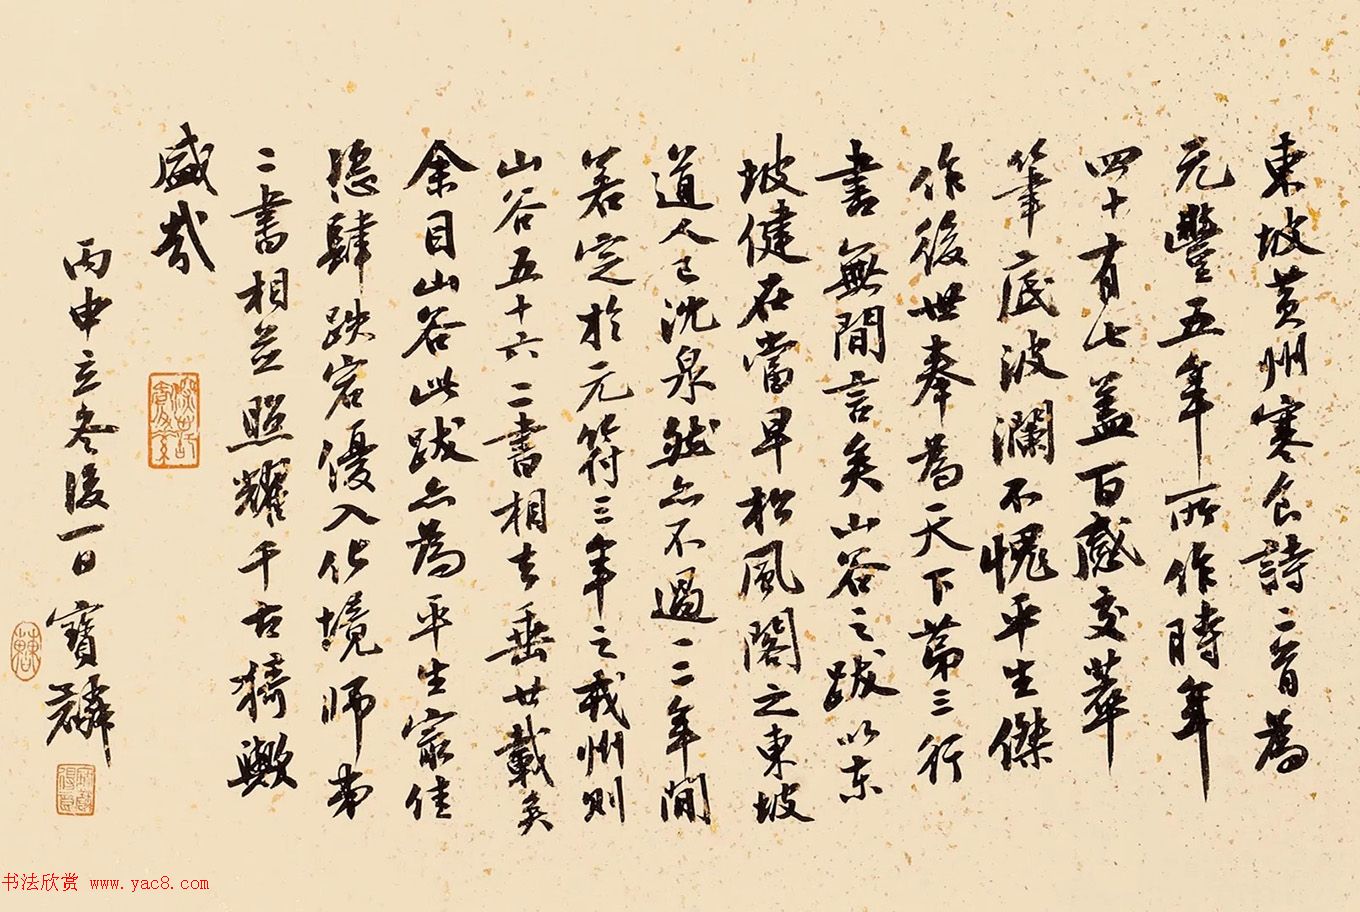 東坡黃州寒食詩二首為
元豐五年所作時年
四十有七蓋百感交萃
筆底波瀾不愧平生傑
作後世奉為天下第三行
書無間言矣山谷之跋以东
坡健在當早松風閣之東坡
道人已沈泉然亦不過一二年間
若定於元符三年之戎州則
山谷五十六二書相去垂廿載矣
余目山谷此跋亦為平生最佳
恣肆跌宕優入化境师弟
二書相並照耀千古猗歟
盛哉
丙申立冬後一日寶麟
书法欣赏 www.yac8.com